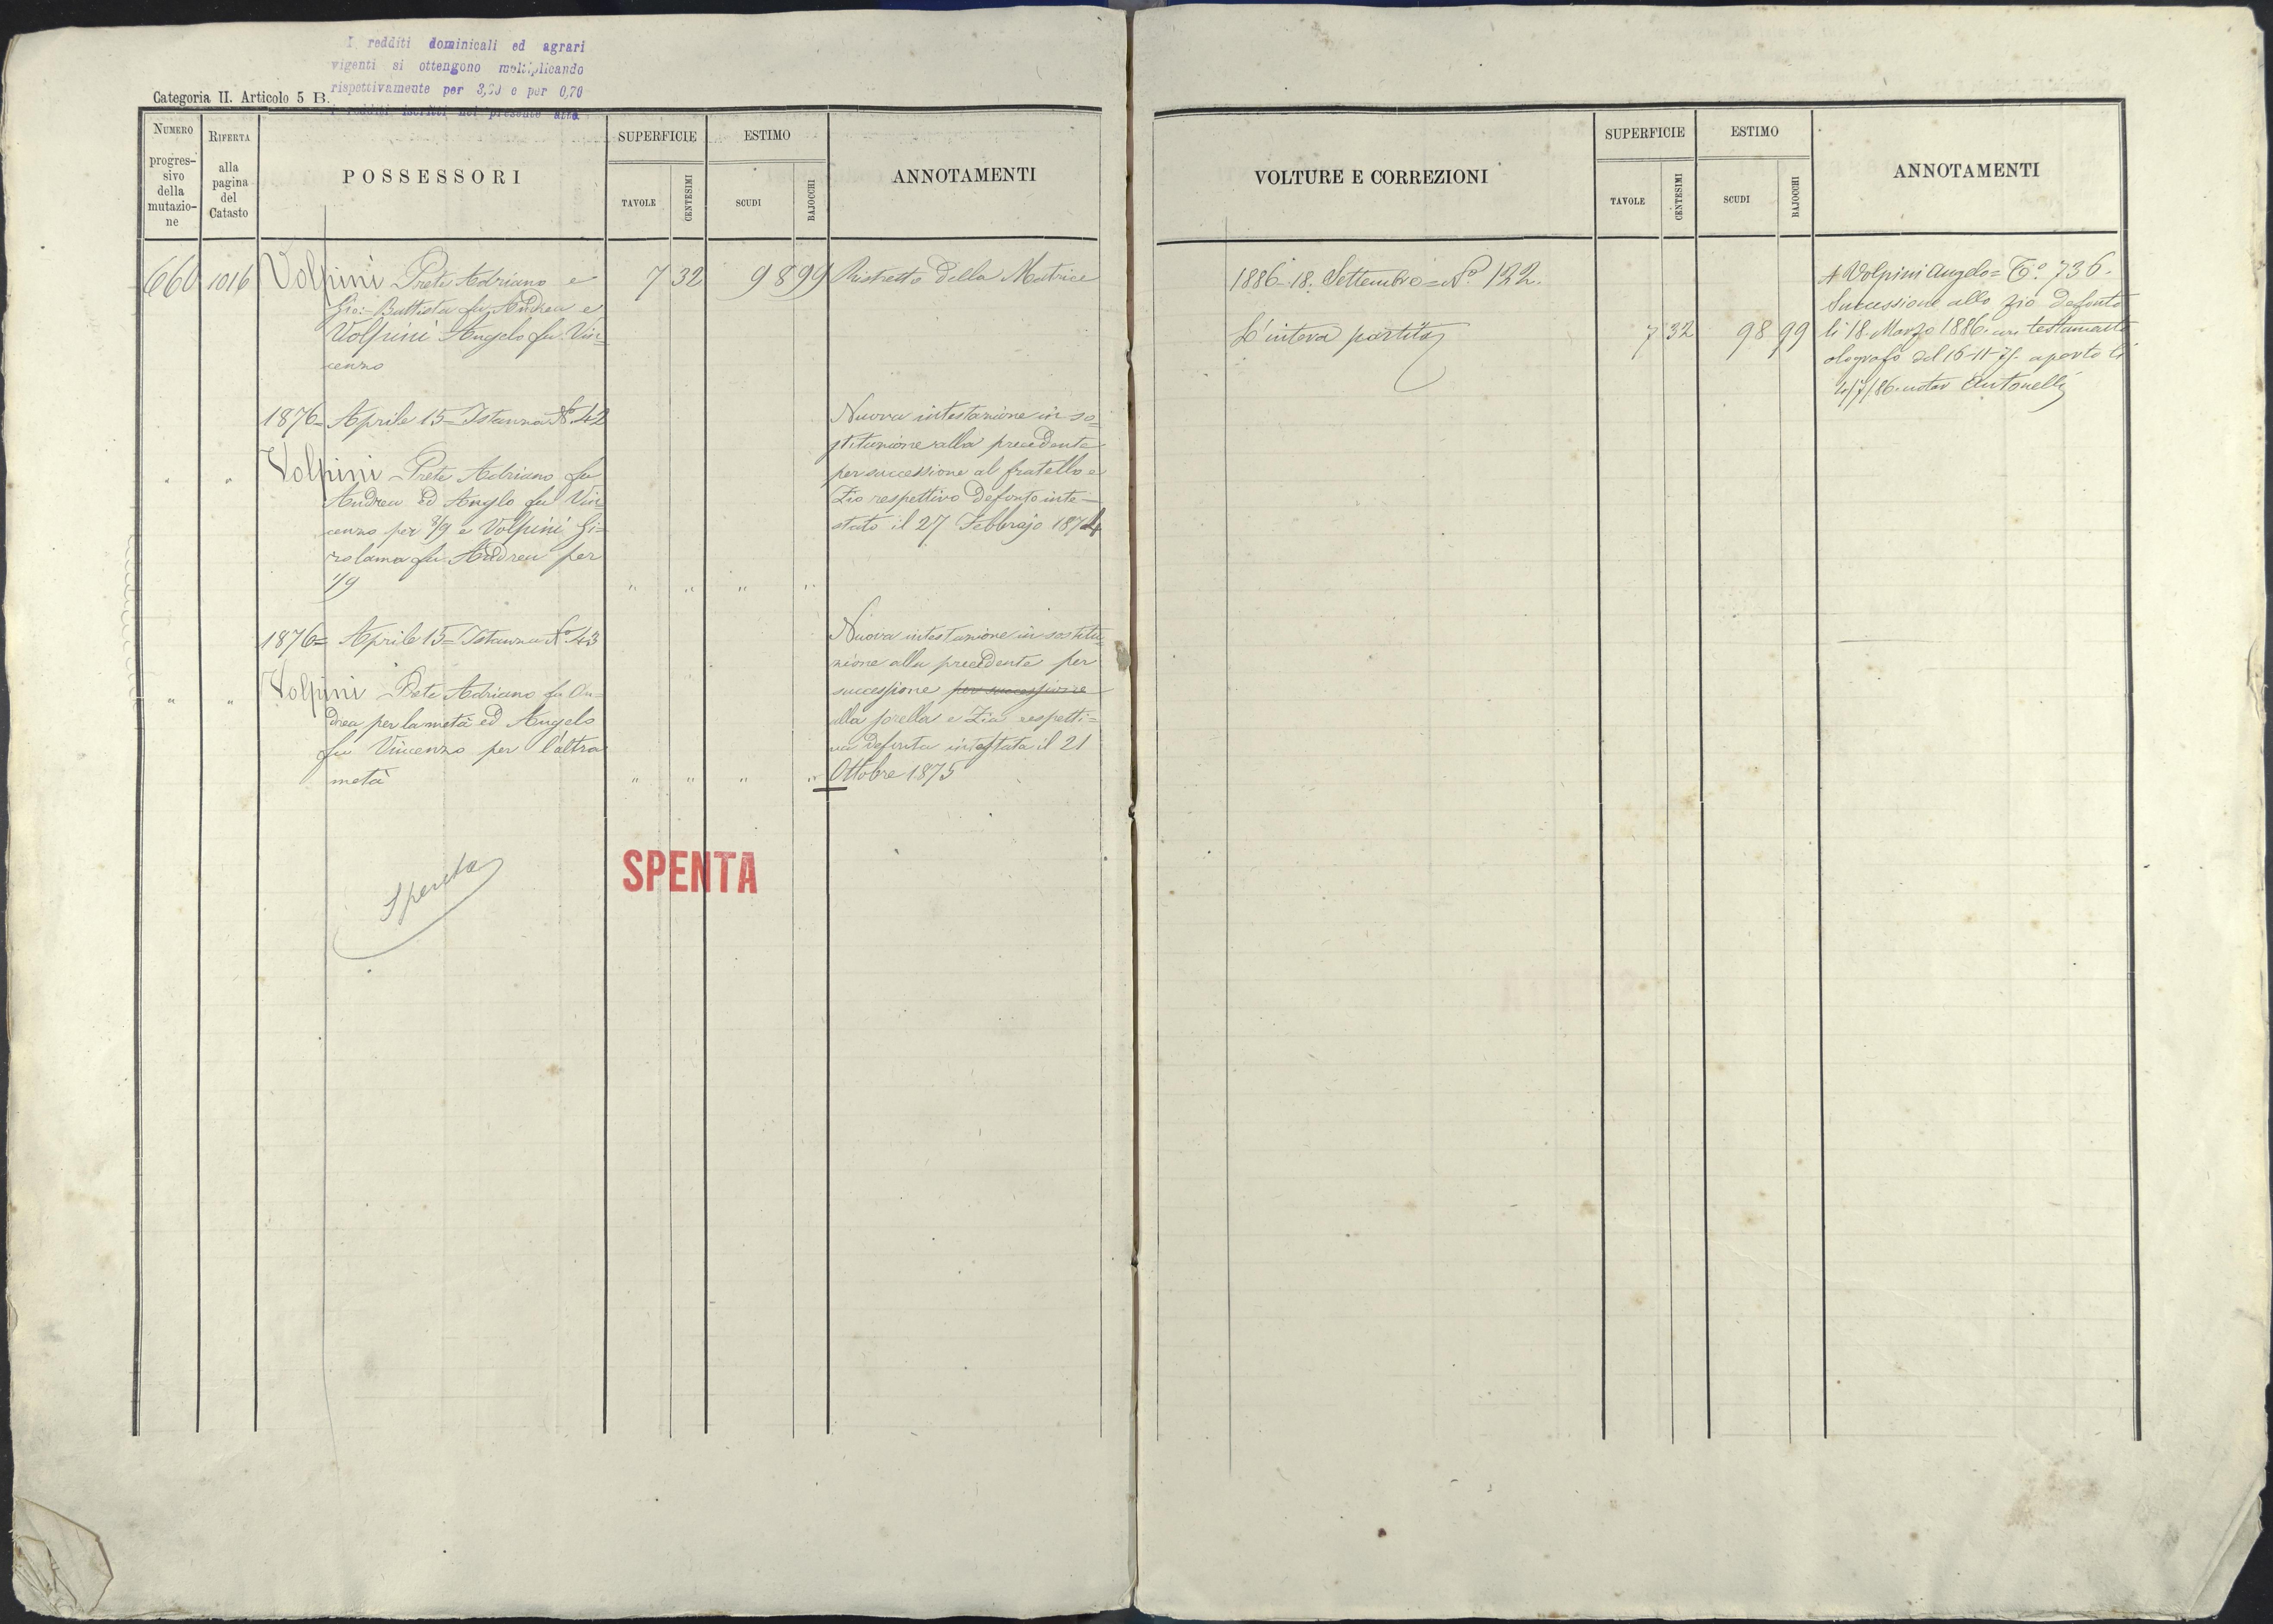 I redditi dominicali ed agrari
vigenti si ottengono moltiplicando
rispettivamente per 3,00 e per 0,70
i redditi iscritti nel presente atto.
Categoria II. Articolo 5 B.
NUMERO progressivo della mutazione
RIFERTA alla pagina del Catasto
POSSESSORI
SUPERFICIE
TAVOLE
CENTESIMI
ESTIMO
SCUDI
BAJOCCHI
ANNOTAMENTI
660 1016 Volpini Prete Adriano e 7 32 98 99 Ristretto della Matrice
Gio: Battista fu Andrea e
Volpini Angelo fu Vin=
cenzo
1876= Aprile 15= Istanza No 42
Volpini Prete Adriano fu
Andrea ed Anglo fu Vin
cenzo per 8/9 e Volpini Gi=
rolama fu Andrea per
1/9 " " " "
Nuova intestazione in so=
stituzione alla precedente
per successione al fratello e
Zio respettivo defonto inte=
stato il 27 Febbrajo 1874
1876= Aprile 15= Istanza No 43
" " Volpini Prete Adriano fu An=
drea per la metà ed Angelo
fu Vincenzo per l'altra
metà " " " "
Nuova intestazione in sostitu=
zione alla precedente per
successione per successione
alla sorella e Zia respetti=
va defonta intestata il 21
Ottobre 1875
Spenta
SPENTA
VOLTURE E CORREZIONI
SUPERFICIE
TAVOLE
CENTESIMI
ESTIMO
SCUDI
BAJOCCHI
ANNOTAMENTI
1886 18. Settembre = No 122.
L'intera partita 7 32 98 99
A Volpini Angelo = To. 736.
Successione allo zio defonto
li 18. Marzo 1886. con testamento
olografo del 16-11-75 aperto li
4/7/86. notar Antonelli